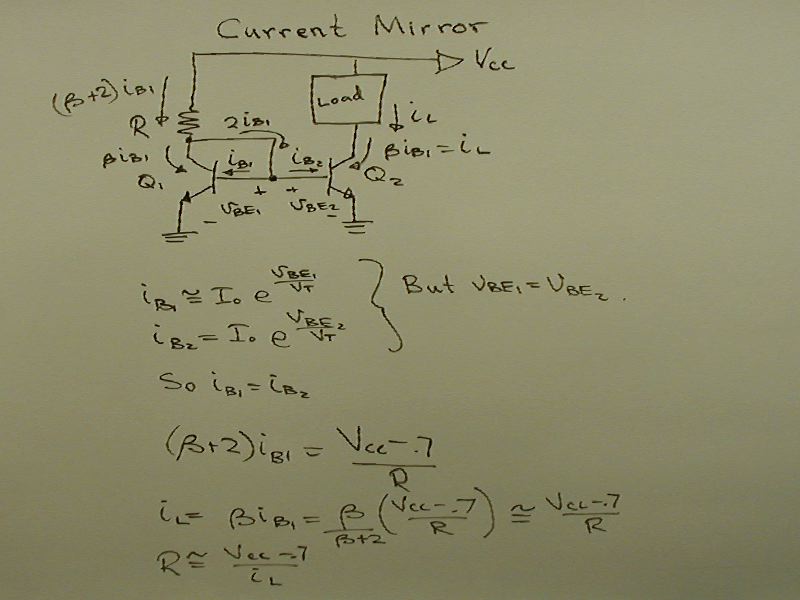 Current Mirror
Vcc
(β+2)iB1
Load
iL
R
2iB1
βiB1
iB1
iB2
βiB1 = iL
Q1
Q2
+ +
- VBE1 VBE2 -
iB1 ≅ Io e^(VBE1/VT)
But VBE1 = VBE2.
iB2 = Io e^(VBE2/VT)
So iB1 = iB2
(β+2)iB1 = (Vcc-.7)/R
iL = βiB1 = β/(β+2) (Vcc-.7/R) ≅ (Vcc-.7)/R
R ≅ (Vcc-.7)/iL